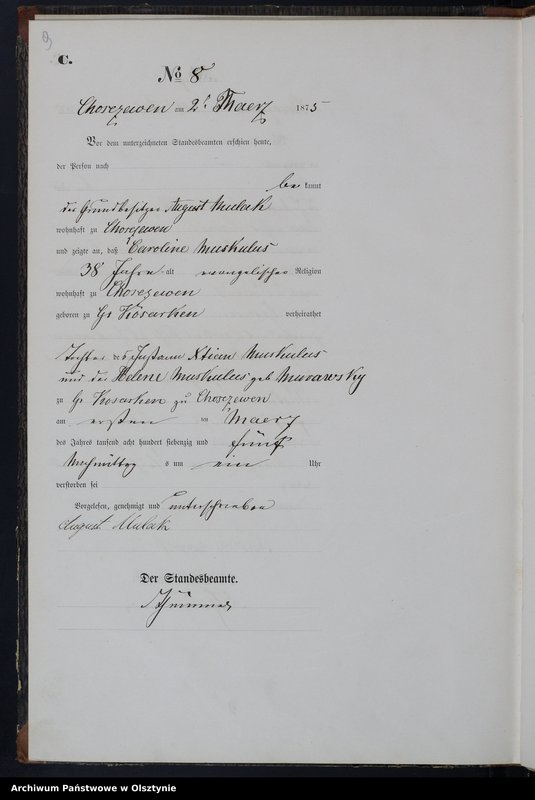 C.
No 8
Chorezewen am 2t Maerz 1875
Vor dem unterzeichneten Standesbeamten erschien heute,
der Person nach
be kannt
der Grundbesitzer August Mulak
wohnhaft zu Chorezewen
und zeigte an, daß Caroline Muskulus
38 Jahre alt evangelischer Religion
wohnhaft zu Chorezewen
geboren zu Gr Kosarken verheirathet
Tochter des Muskulus
und der Helene Muskulus geb Murawsky
zu Gr Kosarken zu Chorezewen
am ersten ten Maerz
des Jahres tausend acht hundert siebenzig und fünf
Nachmittag s um ein Uhr
verstorben sei
Vorgelesen, genehmigt und unterschrieben
August Mulak
Der Standesbeamte.
Archiwum Państwowe w Olsztynie